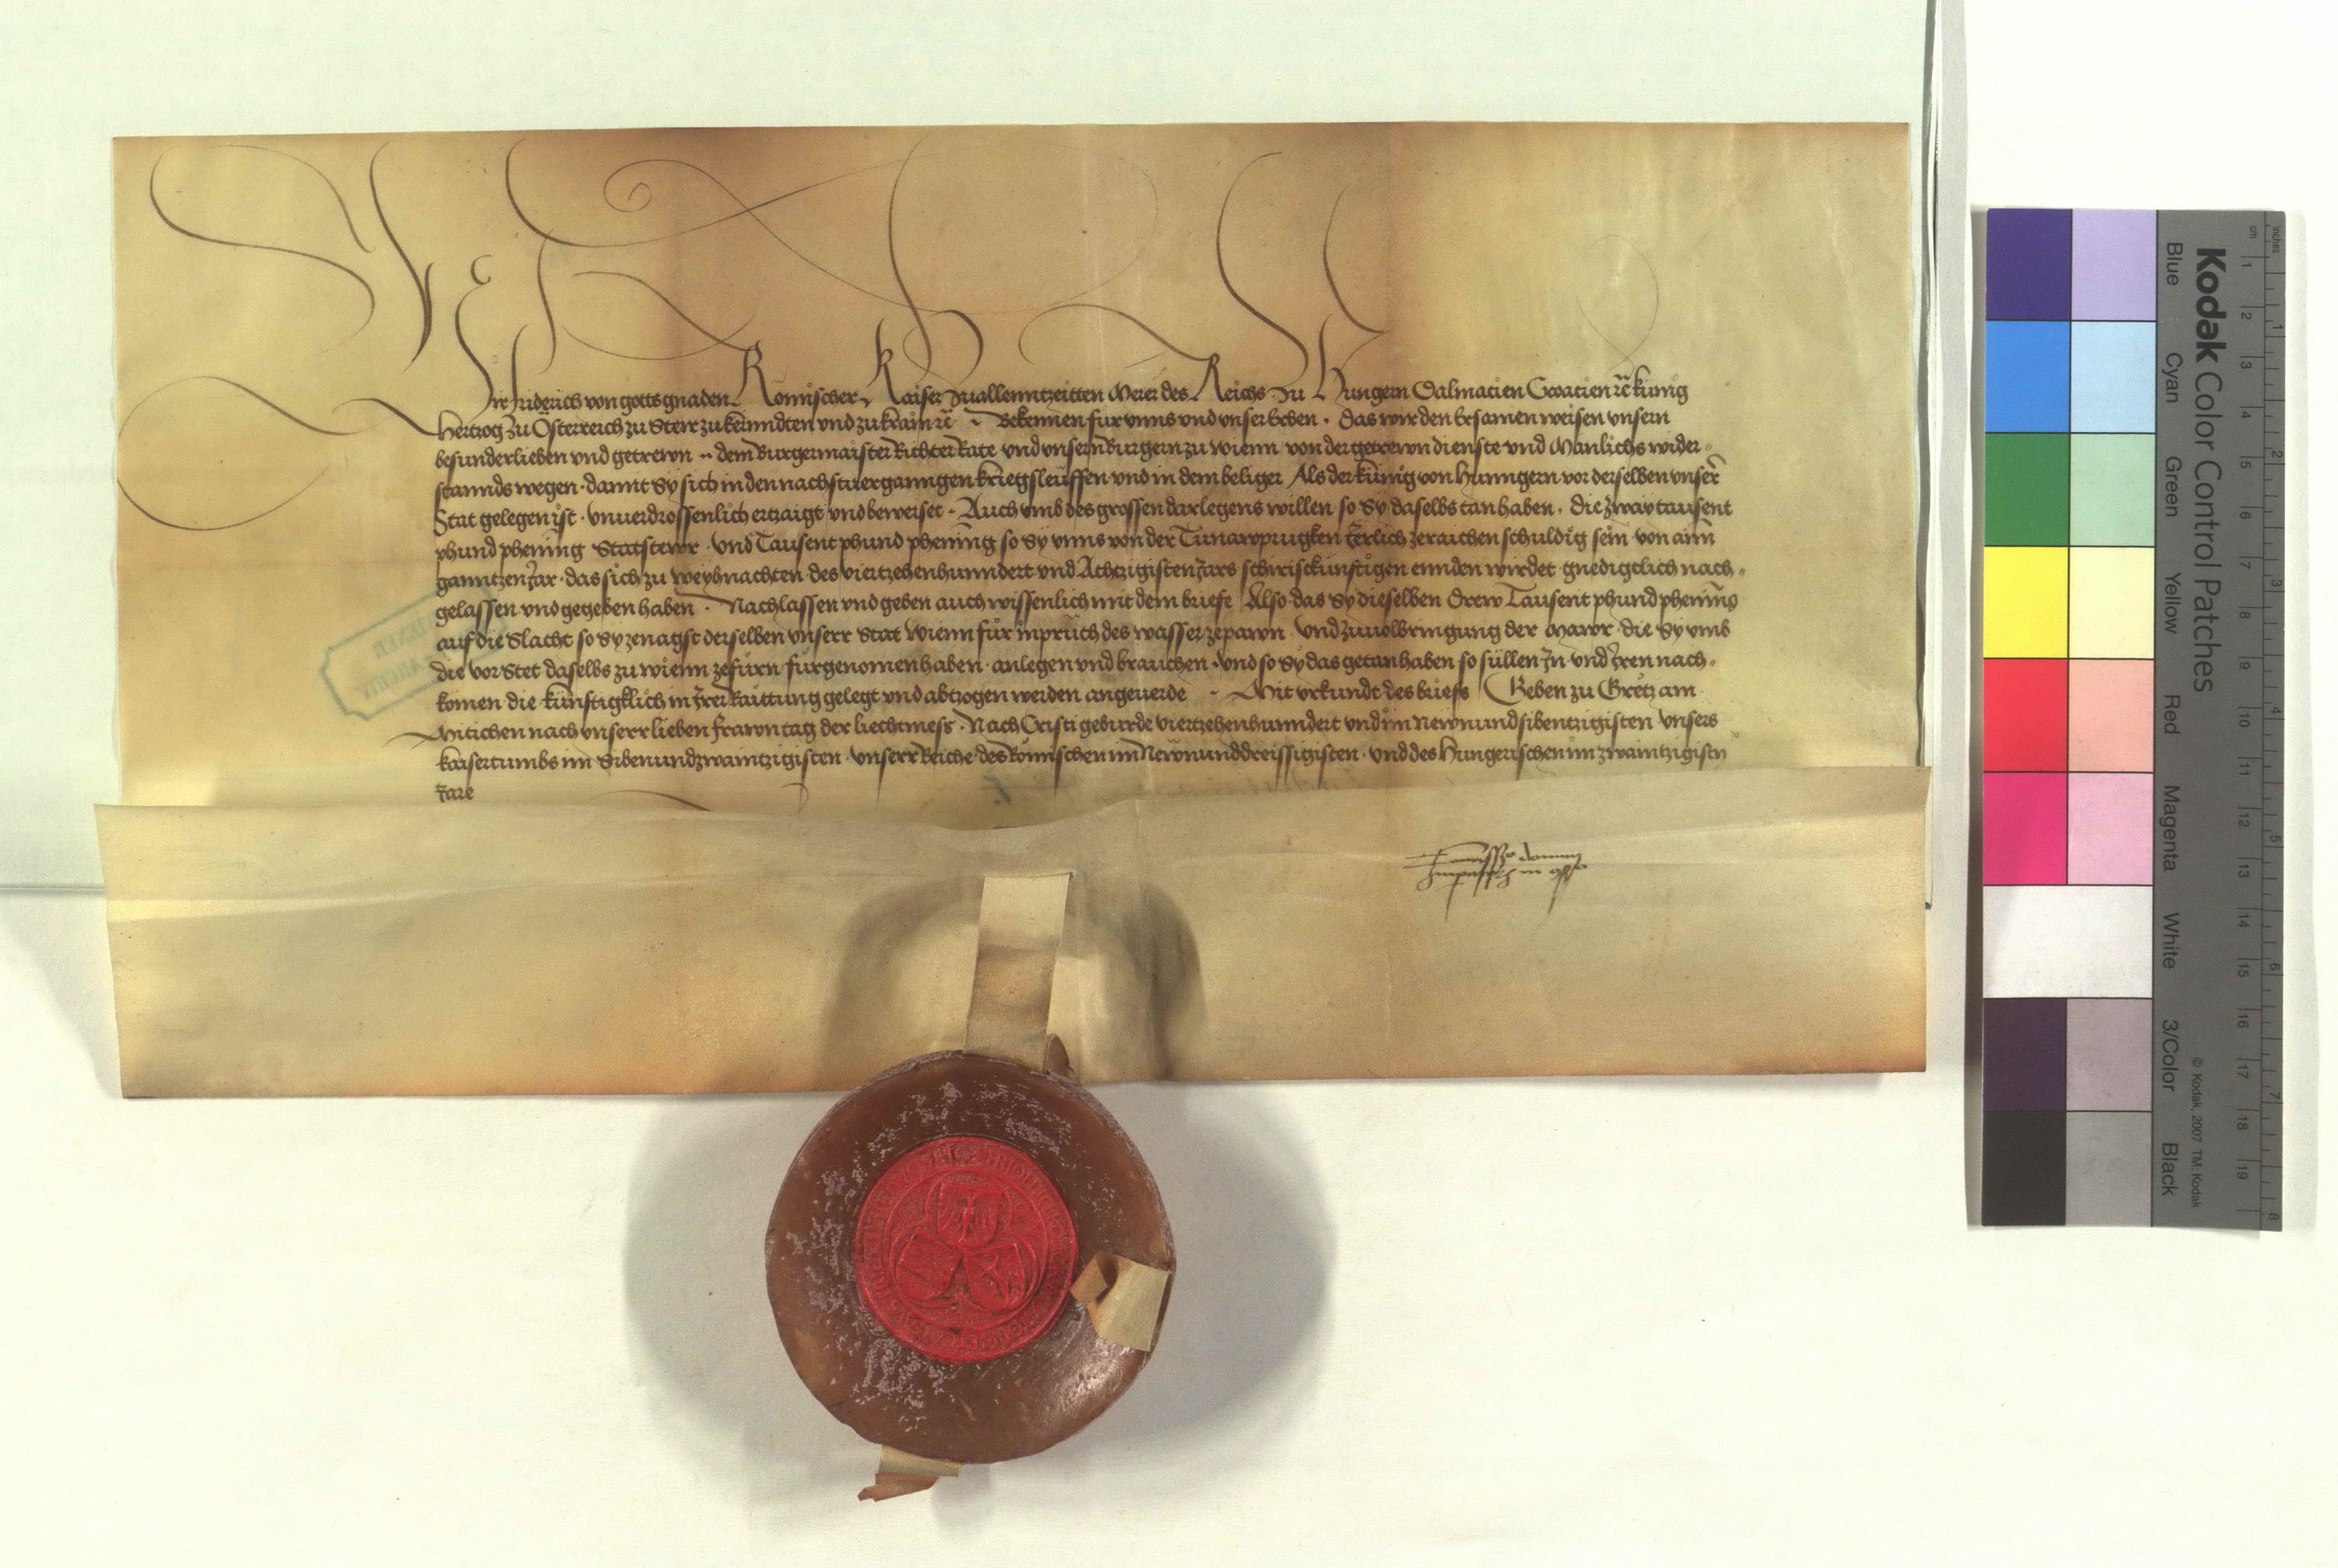 Wir Friderich von gotts gnaden Römischer Kaiser zuallenntzeitten Merer des Reichs zu Hungern Dalmacien Croacien etc̃ kunig
Hertzog zu Osterreich zu Steir zu kernndten und zu krain etc̃ · Bekennen für unns und unser Erben · das wir den Ersamen weisen unsern
besunderlieben und getrewn ·· dem Burgermaister Richter Rate und unsern Burgern zu wienn von der getrewn dienste und Manlichs wider-
stannds wegen · damit Sy sich in den nachstuergangen kriegsleuffen und in dem beliger Als der künig von Hunngern vor derselben unser
Stat gelegen ist · unuerdrossenlich ertzaigt und beweiset · Auch umb des grossen darlegens willen so Sy daselbs tan haben · die zway tausent
phund phening Statstewr · und Tausent phund phening so Sy unns von der Tunawprugken Jerlich zeraichen schuldig sein von aim
ganntzen Jar · das sich zu weyhnachten des viertzehenhunndert und Achtzigisten Jars schiristkunftigen ennden wirdet gnedigclich nach-
gelassen und gegeben haben · Nachlassen und geben auch wissenlich mit dem briefe Also das Sy dieselben Drew Tausent phund phening
auf die Slacht so Sy zenagst derselben unserr Stat Wienn für inpruch des wasser zepawn und zuuolbringung der Mawr die Sy umb
die vor Stet daselbs zu wienn zefürn fürgenomen haben · anlegen und brauchen · und so Sy das getan haben so süllen In und Iren nach-
komen die künftigklich in Irer Raittung gelegt und abtzogen werden angeuerde · Mit urkundt des briefs Geben zu Gretz am
Mitichen nach unserr lieben frawn tag der liechtmess · Nach Cristi geburde viertzehenhunndert und im Newnundsibentzigisten unsers
kaisertumbs im Sibenundzwaintzigisten · unserr Reiche des Römischen im Newnunddreissigisten · und des Hungerischen im zwaintzigistn
Jare
Kodak Color Control Patches
Blue Cyan Green Yellow Red Magenta White 3/Color Black
© Kodak, 2007 TM: Kodak
cm 1 2 3 4 5 6 7 8 9 10 11 12 13 14 15 16 17 18 19
inches 1 2 3 4 5 6 7 8